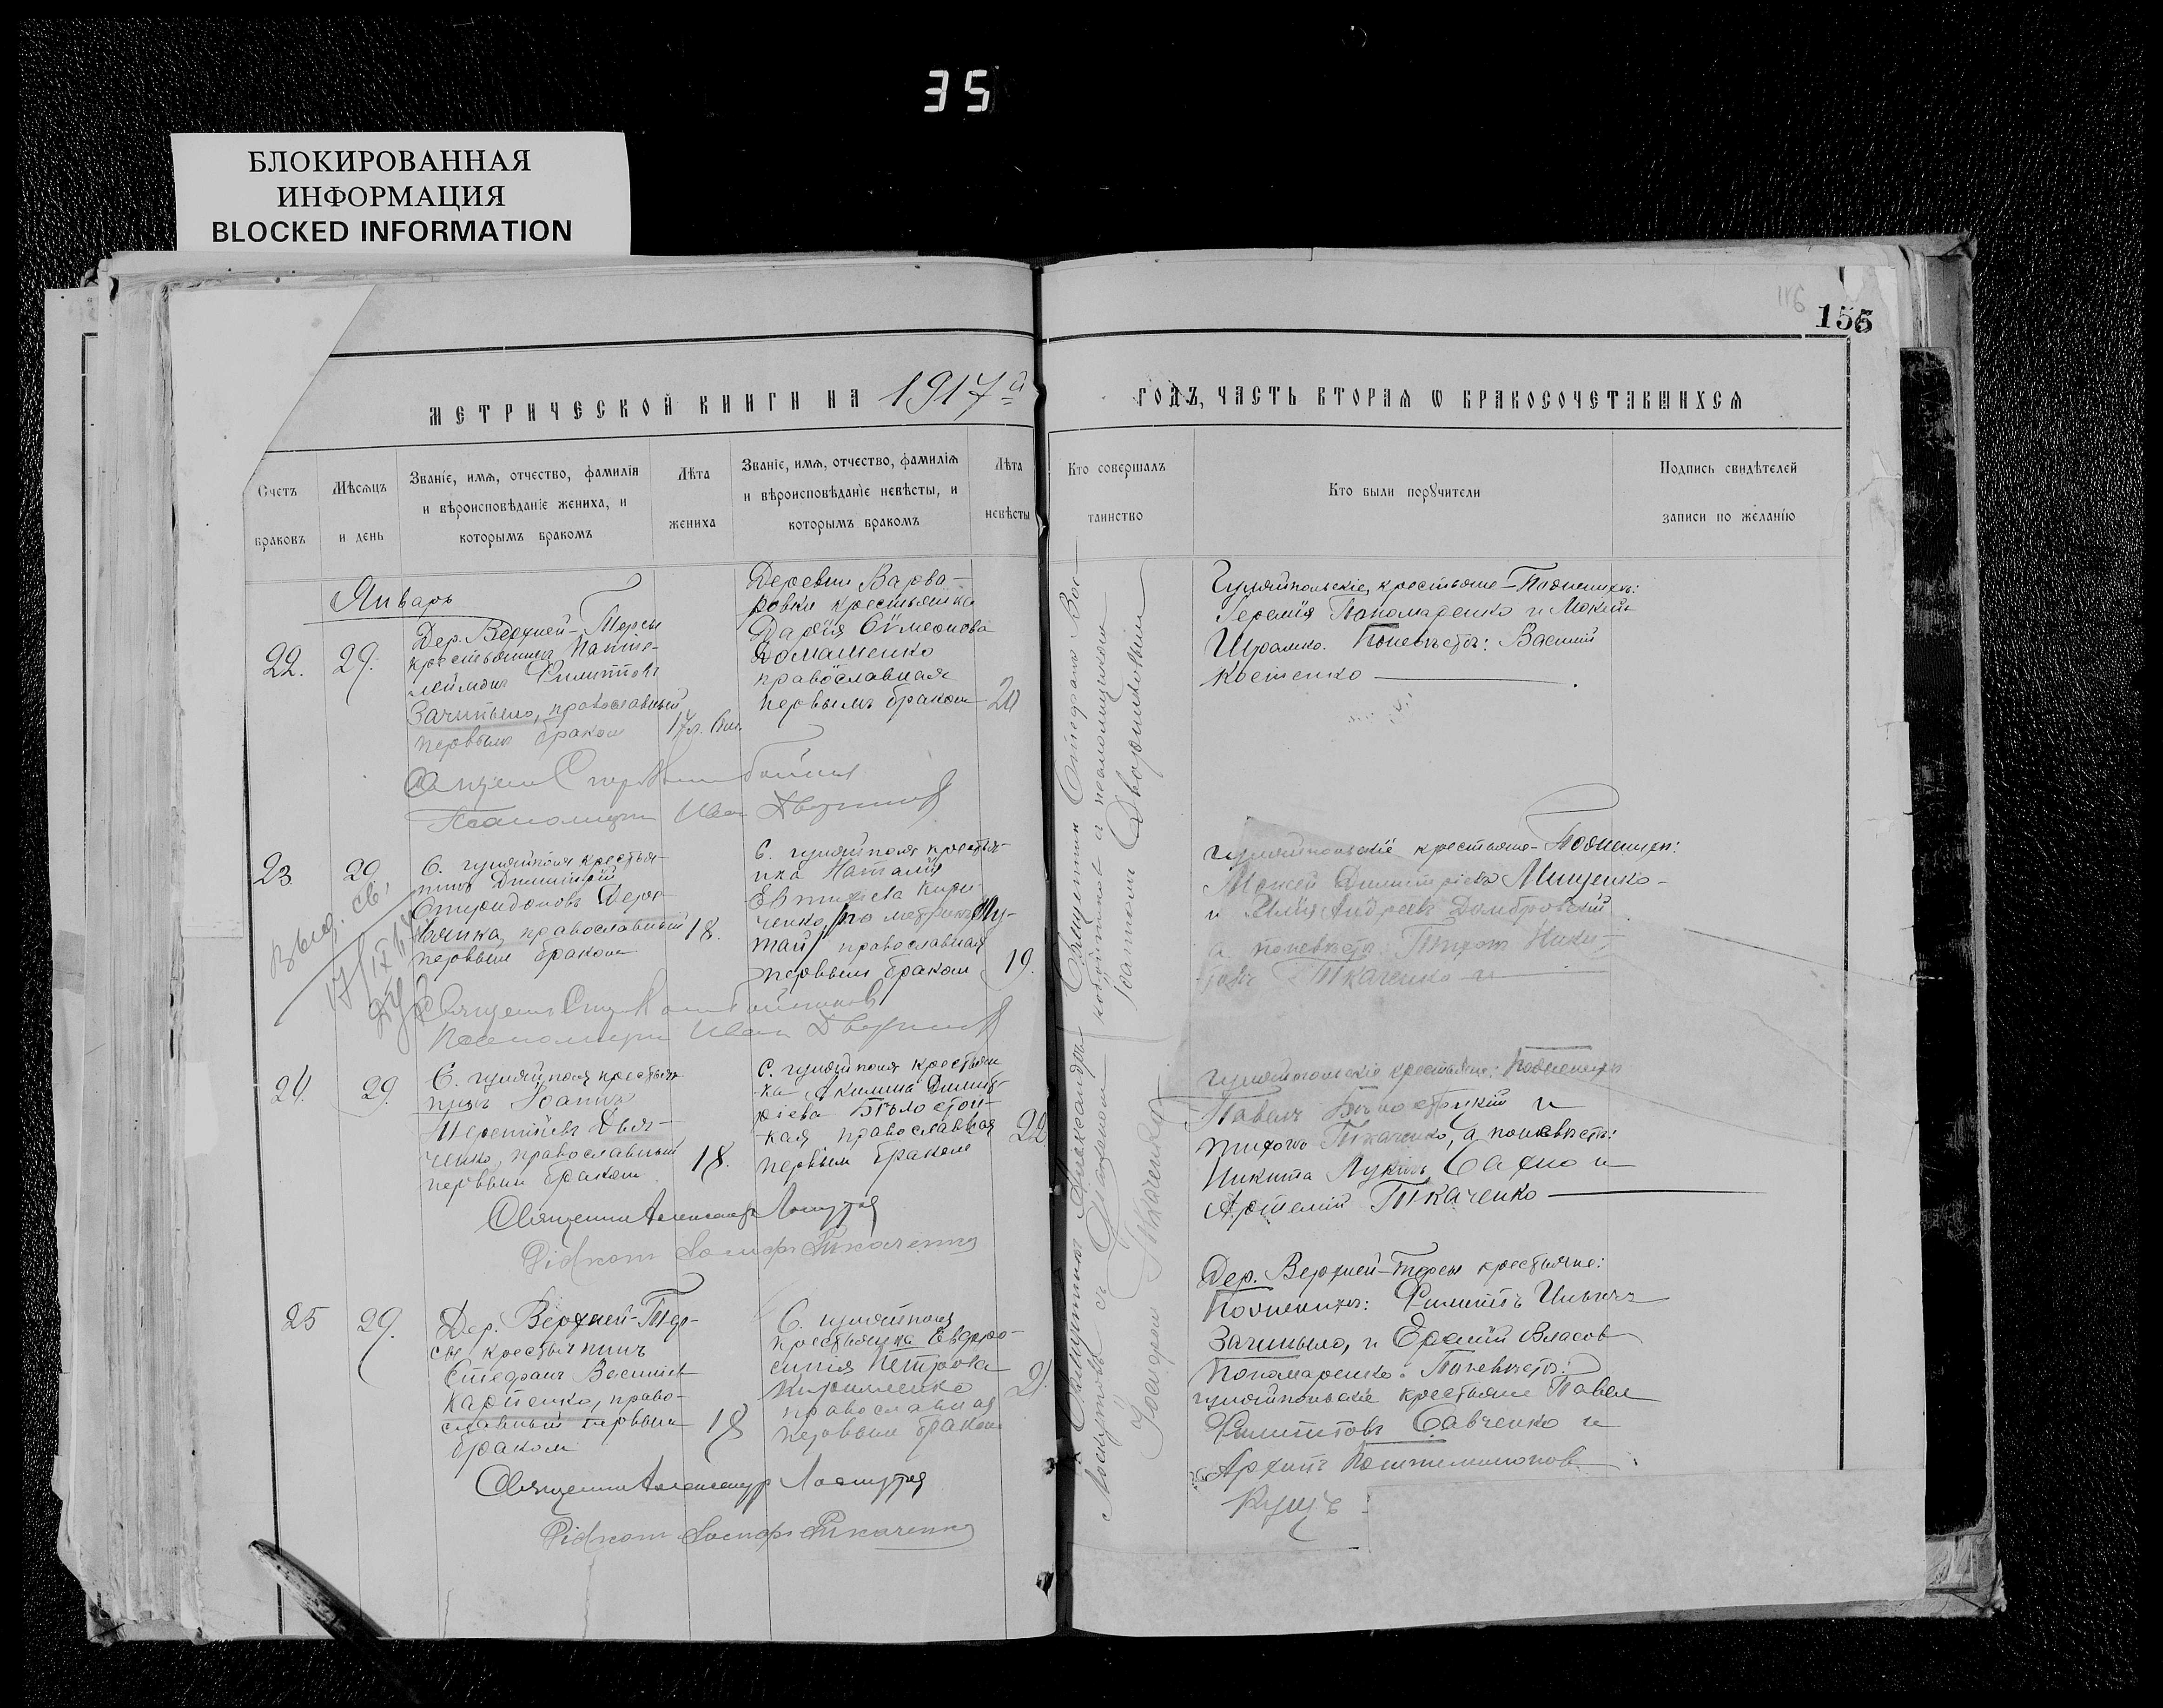 35
БЛОКИРОВАННАЯ
ИНФОРМАЦИЯ
BLOCKED INFORMATION
116
155
МЕТРИЧЕСКОЙ КНИГИ НА 1917й
ГОДЪ, ЧАСТЬ ВТОРАЯ Ѡ БРАКОСОЧЕТАВШИХСЯ
Счетъ
браковъ
Мѣсяцъ
и день
Званіе, имя, отчество, фамилія
и вѣроисповѣданіе жениха, и
которымъ бракомъ
Лѣта
жениха
Званіе, имя, отчество, фамилія
и вѣроисповѣданіе невѣсты, и
которымъ бракомъ
Лѣта
невѣсты
Кто совершалъ
таинство
Кто были порꙋчители
Подпись свидѣтелей
записи по желанію
Январь
22.
29.
Дер. Верхней-Терсы
крестьянинъ Панте-
леймонъ Филипповъ
Зачипыло, православный
первымъ бракомъ
17 л.
Деревни Варва-
ровки крестьянка
Дарія Симеонова
Домашенко
православная
первымъ бракомъ
20
Гуляйпольскіе крестьяне По женихѣ:
Іеремія Пономаренко и Мокій
Шрамко. По невѣстѣ: Василій
Костенко
Псаломщикъ Иван
23.
29.
С. Гуляйполя крестья-
нинъ Димитрій
Спиридоновъ
православный
первымъ бракомъ
18.
С. Гуляйполя крестья-
нка Наталія
Евтихіева Кири-
ченко, по метрикѣ
православная
первымъ бракомъ
19.
Гуляйпольскіе крестьяне По женихѣ:
Моисей Димитріевъ Мищенко
и Илія Андреевъ Домбровскій
а по невѣстѣ: Петръ Ники-
товъ Ткаченко и
Выд. св.
17/IX
Псаломщикъ Иван
24.
29.
С. Гуляйполя крестья-
нинъ Іоаннъ
Терентіевъ Дья-
ченко, православный
первымъ бракомъ
18.
С. Гуляйполя крестьян
ка Акилина Димит-
ріева Бѣлостоц-
кая православная
первымъ бракомъ
22
Гуляйпольскіе крестьяне: По женихѣ
Павелъ Бѣлостоцкій и
Тихонъ Ткаченко, а по невѣстѣ:
Никита Лукинъ Сахно и
Артемій Ткаченко
Священникъ Александръ Лоскутовъ
Діаконъ Іосифъ Ткаченко
25
29.
Дер. Верхней-Тер-
сы крестьянинъ
Стефанъ Василіев
Карпенко, право-
славный первымъ
бракомъ
18
С. Гуляйполя
крестьянка Евфро-
синія Петрова
Кириленко
православная
первымъ бракомъ
21
Дер. Верхней-Терсы крестьяне:
По женихѣ: Филиппъ Ильинъ
Зачипыло, и Еремій Власов
Пономаренко. По невѣстѣ:
Гуляйпольскіе крестьяне Павел
Филипповъ Савченко и
Архипъ Пантелимонов
Кущъ
Священникъ Александръ Лоскутовъ
Діаконъ Іосифъ Ткаченко